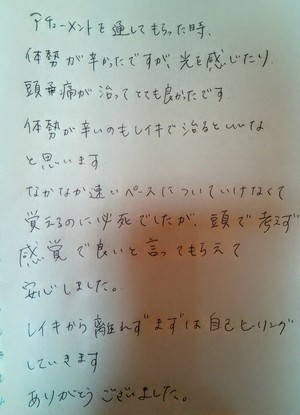 アチューメントを通してもらった時、
体勢が辛かったですが、光を感じたり、
頭重痛が治ってとても良かったです
体勢が辛いのもレイキで治るといいな
と思います
なかなか速いペースについていけなくて
覚えるのに必死でしたが、頭で考えず
感覚で良いと言ってもらえて
安心しました。
レイキから離れずまずは自己ヒーリング
していきます
ありがとうございました。